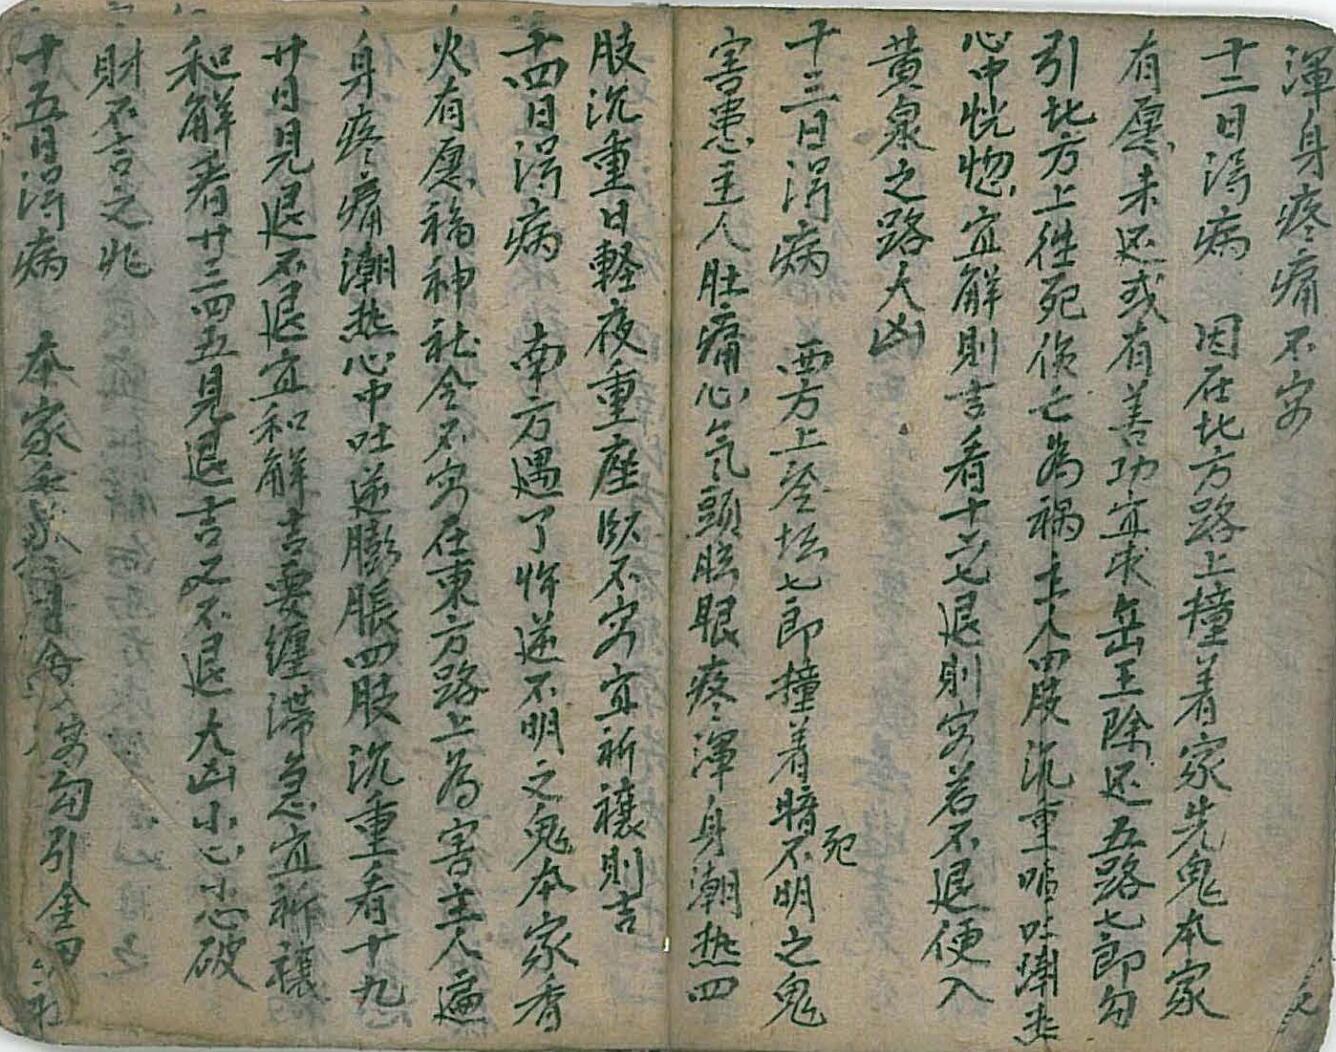 渾身疼痛不安
十二日淂病 因在北方路上撞着家先鬼本家
有愿未还或有善功宜求岳王除还五路七郎勾
引北方上徃死傷亡為禍主人四肢沉重嘔吐潮热
心中恍惚宜解則吉看十六七退則安若不退便入
黄泉之路大凶
十三日淂病 西方上登坛七郎撞着暗死不明之鬼
害患主人肚痛心气頭昏眼疼渾身潮热四
肢沉重日軽夜重座臥不安宜祈禳則吉
十四日淂病 南方遇了忤逆不明之鬼本家香
火有愿福神社令不安在東方路上為害主人遍
身疼痛潮热心中吐逆膨脹四肢沉重看十九
廿日見退不退宜和解吉要纏滞急宜祈禳
和解看廿三四五見退吉又不退大凶小心小心破
財不吉之兆
十五日淂病 本家 勾引金